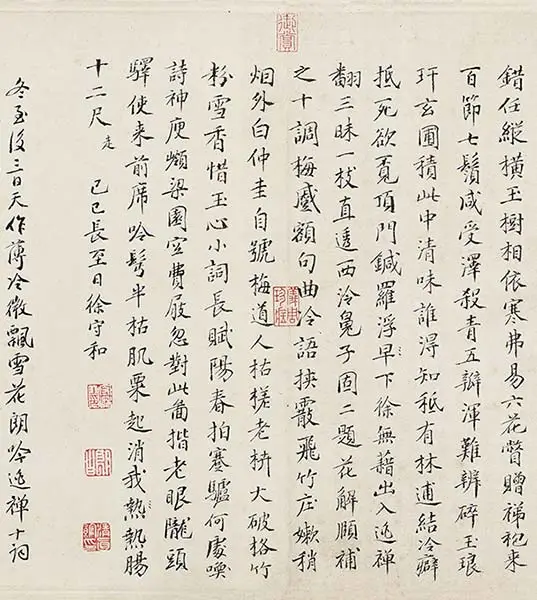 御賞
錯任縱橫玉樹相依寒弗易六花瞥贈袍來
百節七鬚咸受澤殺青五瓣渾難辨碎玉琅
玕玄圃積此中清味誰得知秖有林逋結冷癖
抵死欲覓頂門鍼羅浮早下徐無藉出入逃禪
翻三昧一枝直透西泠鳧子固二題花解頤補
之十調梅蹙額句曲冷語挾霰飛竹庄嫩稍
烟外白仲圭自號梅道人枯槎老枿大破格竹
粉雪香惜玉心小詞長賦陽春拍蹇驢何處喚
詩神庾嶺梁園空費屐忽對此啚揩老眼隴頭
驛使来前席吟髩半枯肌粟起消我熱熱腸
十二尺 走 己巳長至日徐守和
冬至後三日天作薄冷微飄雪花朗吟逃禪十詞
儀周珍藏